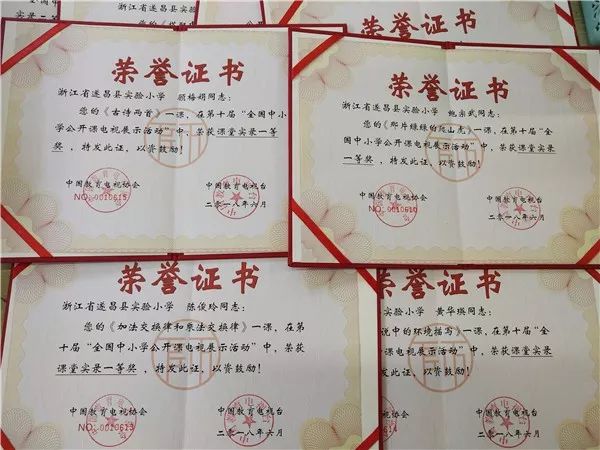 荣誉证书
浙江省遂昌县实验小学 顾梅娟同志:
您的《古诗两首》一课,在第十届“全国中小
学公开课电视展示活动”中,荣获课堂实录一等
奖,特发此证,以资鼓励!
中国教育电视协会 中国教育电视台
NO:0010615 二〇一八年六月
荣誉证书
浙江省遂昌县实验小学 鲍宗武同志:
您的《那片绿绿的爬山虎》一课,在第十届“全
国中小学公开课电视展示活动”中,荣获课堂实录
一等奖,特发此证,以资鼓励!
中国教育电视协会 中国教育电视台
NO:0010610 二〇一八年六月
荣誉证书
浙江省遂昌县实验小学 陈俊玲同志:
您的《加法交换律和乘法交换律》一课,在第
十届“全国中小学公开课电视展示活动”中,荣获
课堂实录一等奖,特发此证,以资鼓励!
中国教育电视协会 中国教育电视台
NO:0010613 二〇一八年六月
荣誉证书
实验小学 黄华瑛同志:
说中的环境描写》一课,在第十届“全
课电视展示活动”中,荣获课堂实录
发此证,以资鼓励!
视协会 中国教育电视台
二〇一八年六月